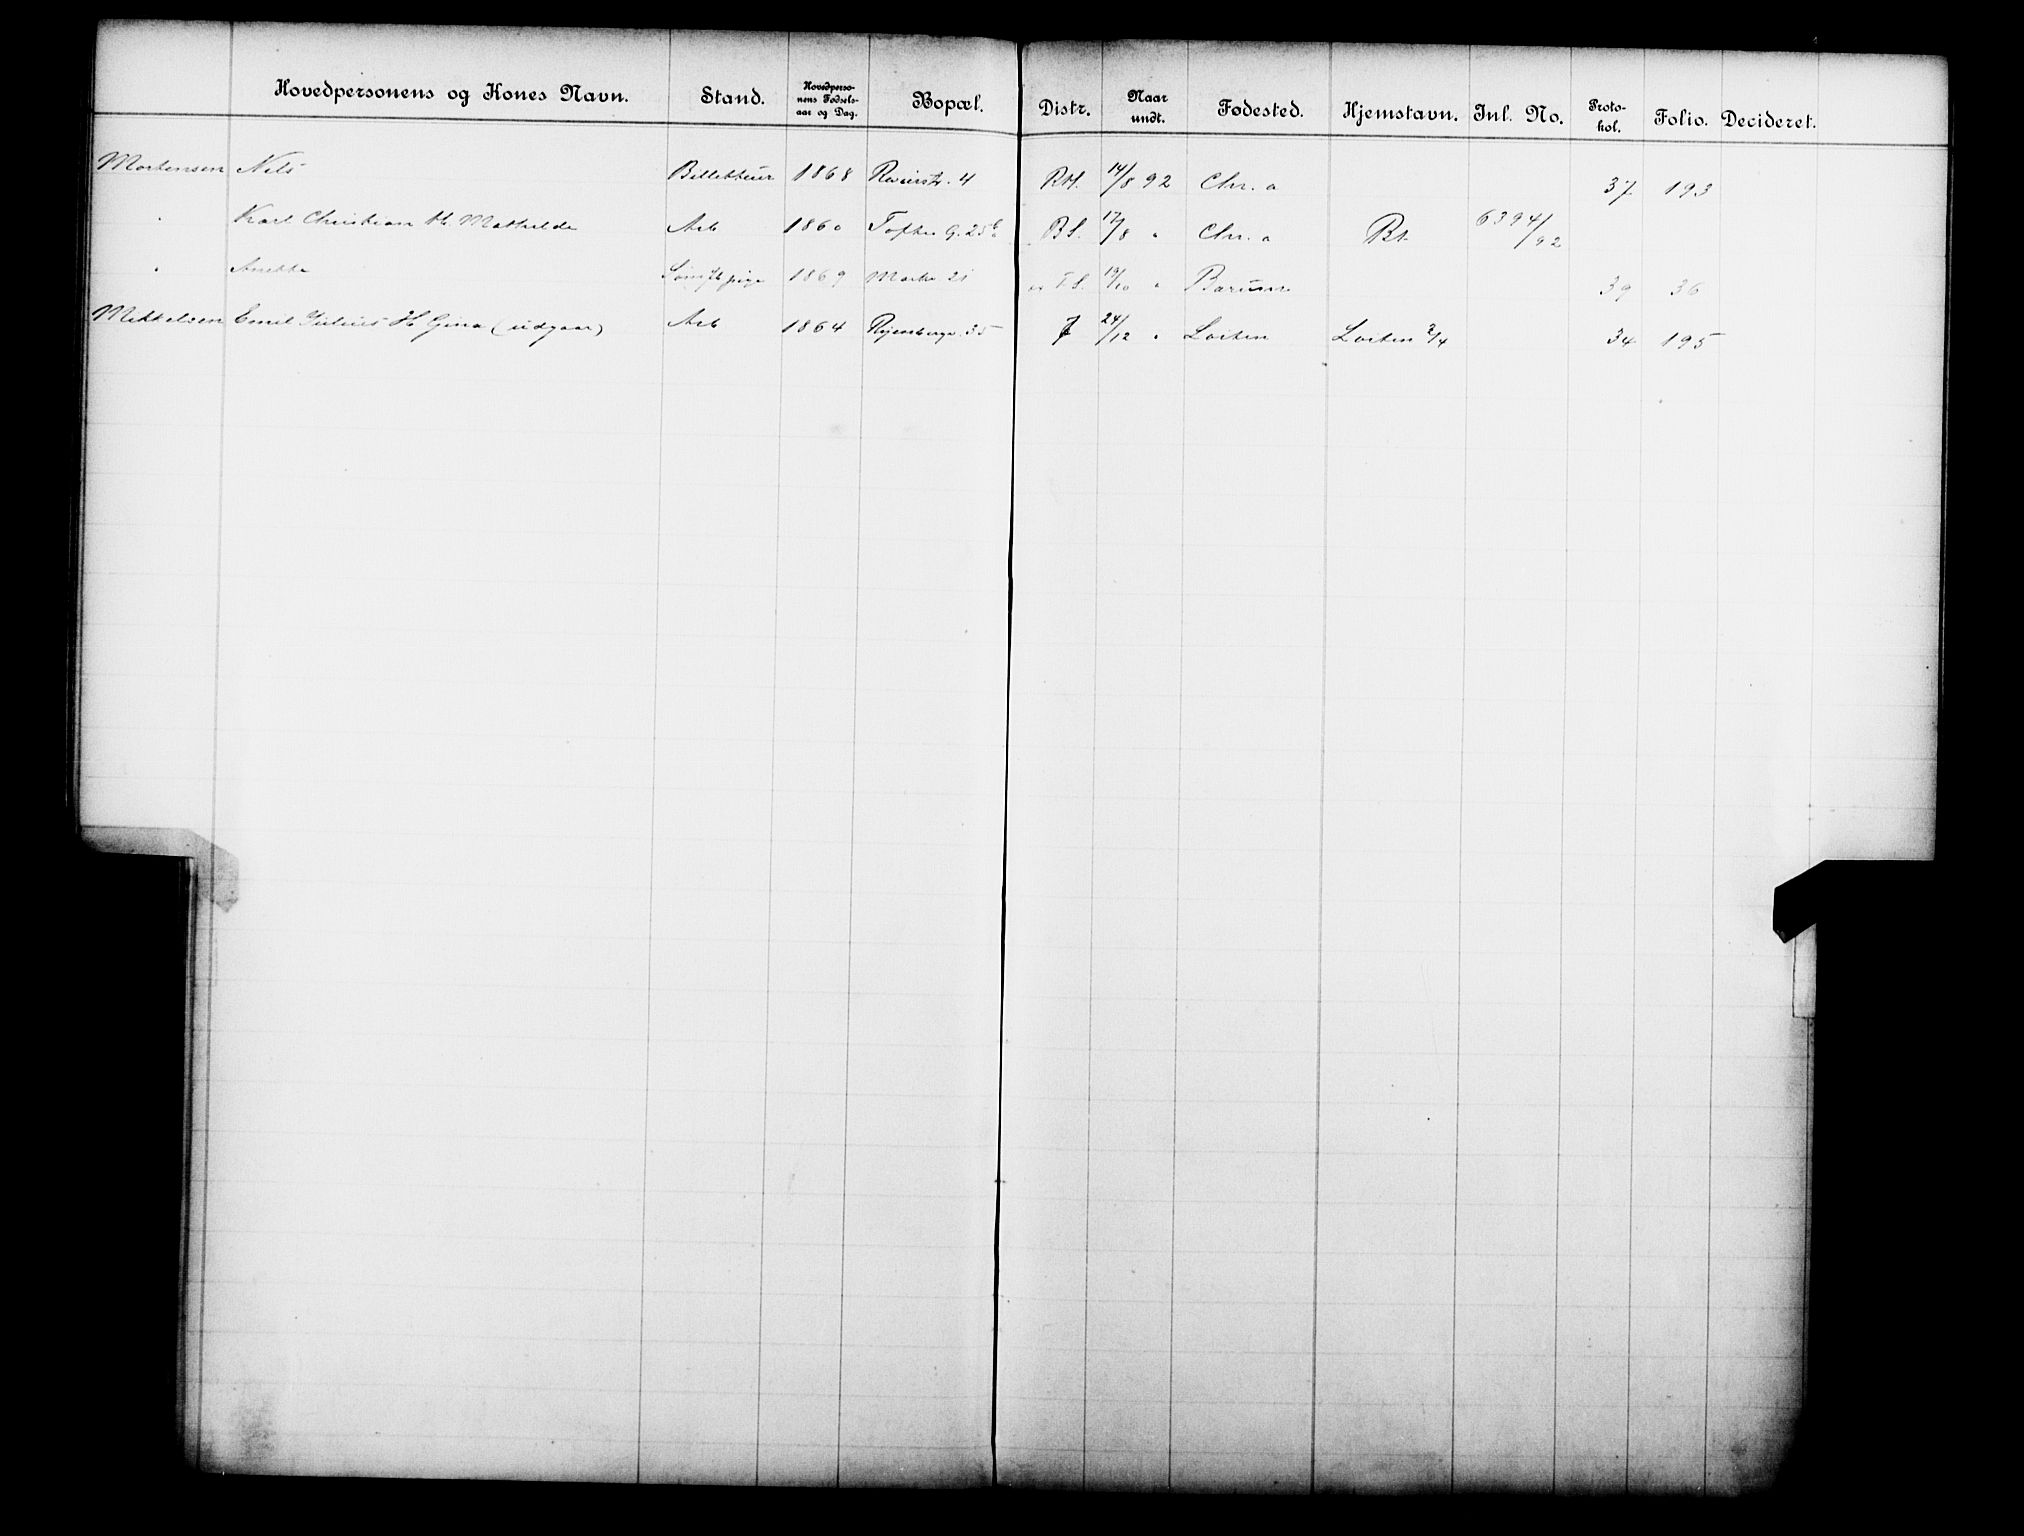 Hovedpersonens og Kones Navn. Stand. Hovedperso-nens Fødsels-aar og Dag. Bopæl. Distr. Naar undt. Fødested. Hjemstavn. Inl. No. Proto-kol. Folio. Decideret.
Mortensen Nils Billetteur 1868 4 RH. 14/8 92 Chr. a 37 193
" Karl Christian H. Mathilde Arb 1860 Tofte G. 25 BS. 17/8 " Chr. a Bt 6394/92
" Anette 1869 21 19/10 " Bærum 39 36
Mikkelsen Emil Julius H Gina (udgaar) Arb 1864 35 24/12 " Løiten Løiten 2/4 34 195